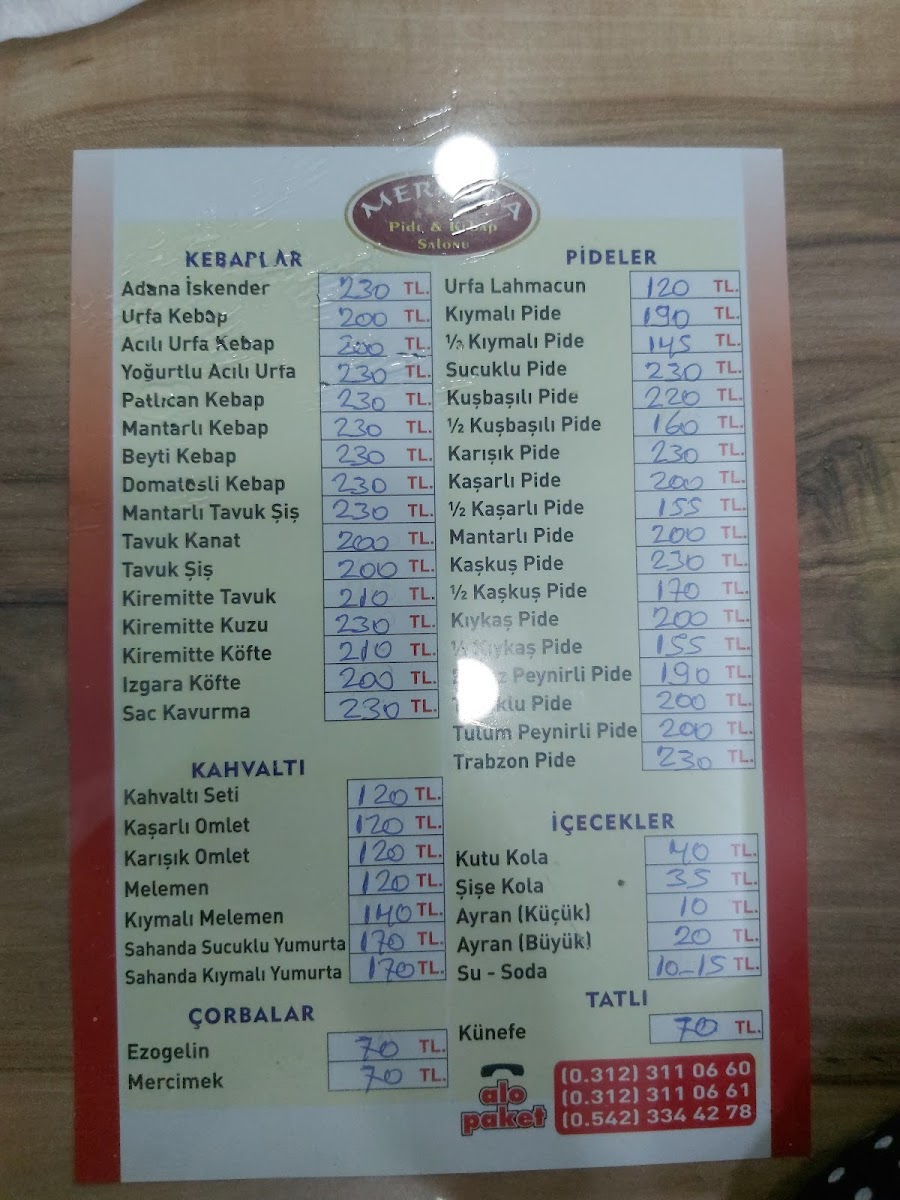 Pide & Kebap
Salonu
KEBAPLAR
Adana İskender 230 TL.
Urfa Kebap 200 TL.
Acılı Urfa Kebap 200 TL.
Yoğurtlu Acılı Urfa 230 TL.
Patlıcan Kebap 230 TL.
Mantarlı Kebap 230 TL.
Beyti Kebap 230 TL.
Domatesli Kebap 230 TL.
Mantarlı Tavuk Şiş 230 TL.
Tavuk Kanat 200 TL.
Tavuk Şiş 200 TL.
Kiremitte Tavuk 210 TL.
Kiremitte Kuzu 230 TL.
Kiremitte Köfte 210 TL.
Izgara Köfte 200 TL.
Sac Kavurma 230 TL.
KAHVALTI
Kahvaltı Seti 120 TL.
Kaşarlı Omlet 120 TL.
Karışık Omlet 120 TL.
Melemen 120 TL.
Kıymalı Melemen 140 TL.
Sahanda Sucuklu Yumurta 170 TL.
Sahanda Kıymalı Yumurta 170 TL.
ÇORBALAR
Ezogelin 70 TL.
Mercimek 70 TL.
PİDELER
Urfa Lahmacun 120 TL.
Kıymalı Pide 190 TL.
½ Kıymalı Pide 145 TL.
Sucuklu Pide 230 TL.
Kuşbaşılı Pide 220 TL.
½ Kuşbaşılı Pide 160 TL.
Karışık Pide 230 TL.
Kaşarlı Pide 200 TL.
½ Kaşarlı Pide 155 TL.
Mantarlı Pide 200 TL.
Kaşkuş Pide 230 TL.
½ Kaşkuş Pide 170 TL.
Kıykaş Pide 200 TL.
½ Kıykaş Pide 155 TL.
Peynirli Pide 190 TL.
Pide 200 TL.
Tulum Peynirli Pide 200 TL.
Trabzon Pide 230 TL.
İÇECEKLER
Kutu Kola 40 TL.
Şişe Kola 35 TL.
Ayran (Küçük) 10 TL.
Ayran (Büyük) 20 TL.
Su - Soda 10-15 TL.
TATLI
Künefe 70 TL.
alo
paket
(0.312) 311 06 60
(0.312) 311 06 61
(0.542) 334 42 78